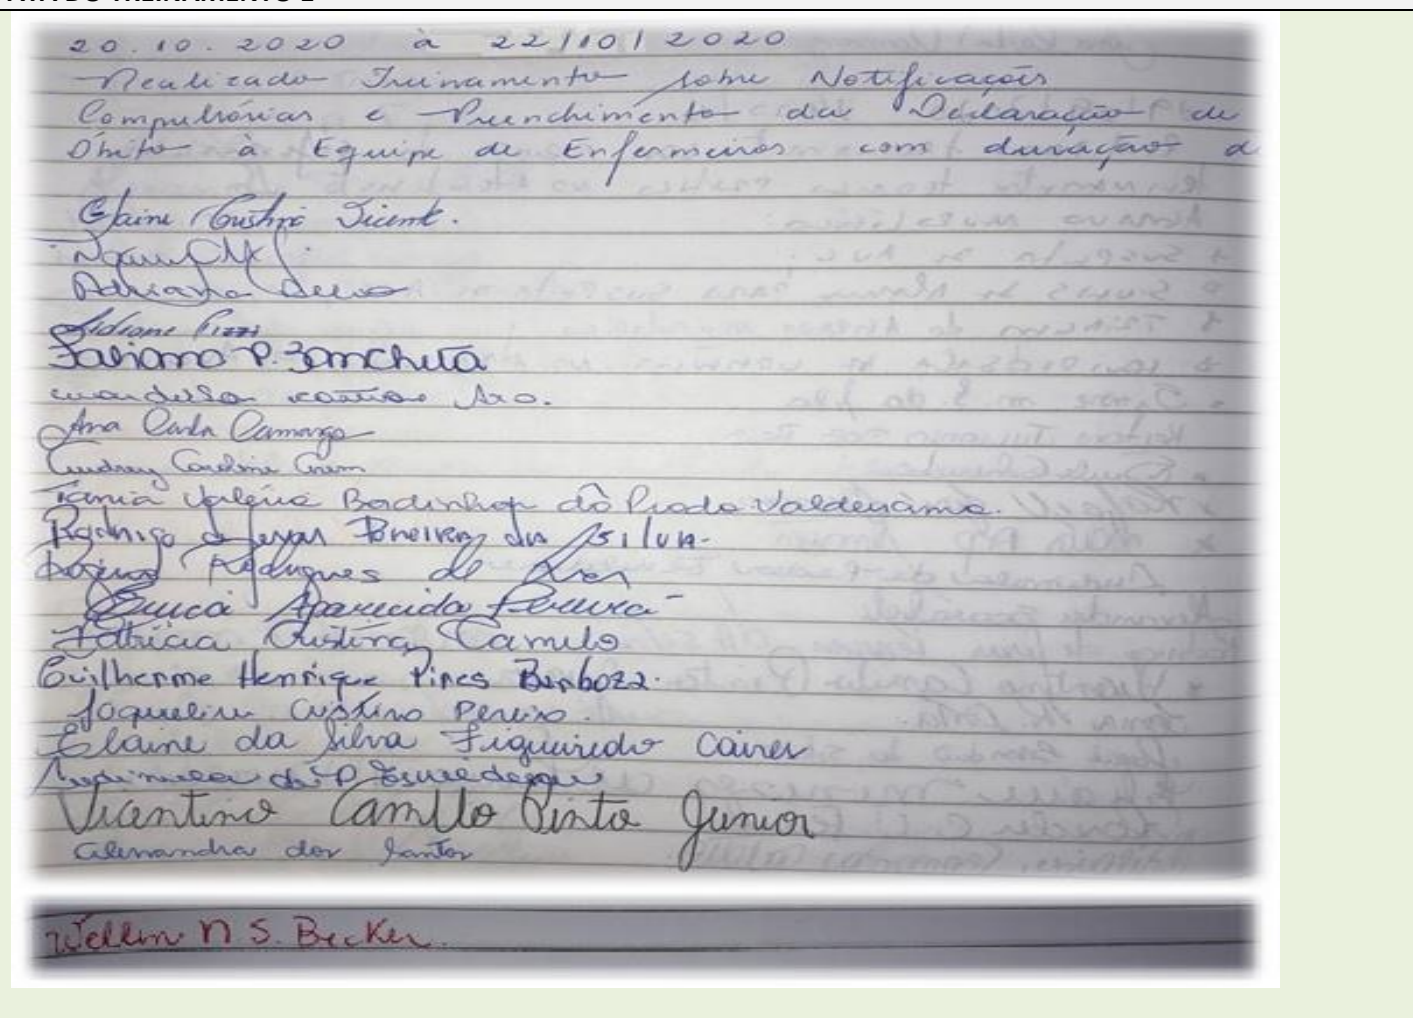 20.10.2020 à 22/10/2020
Realizado Treinamento sobre Notificações
Compulsórias e Preenchimento da Declaração de
Óbito à Equipe de Enfermeiros com duração d
Elaine Cristina Vicent.
Adriana
Lidiane Pizzi
Fabiano P. Zanchita
Ana Carla Camargo
Caroline
Tania Valéria Bordinhon do Prado Valderrama.
Rodrigo de Jesus Pereira da Silva.
Rodrigues de
Aparecida Pereira
Patricia Cristina Camilo
Guilherme Henrique Pires Barboza.
Jaqueline Cristina Pereira.
Elaine da Silva Figueiredo Caires
Vicentino Camillo Pinto Junior
Alessandra dos Santos
Wellen N S. Becker.